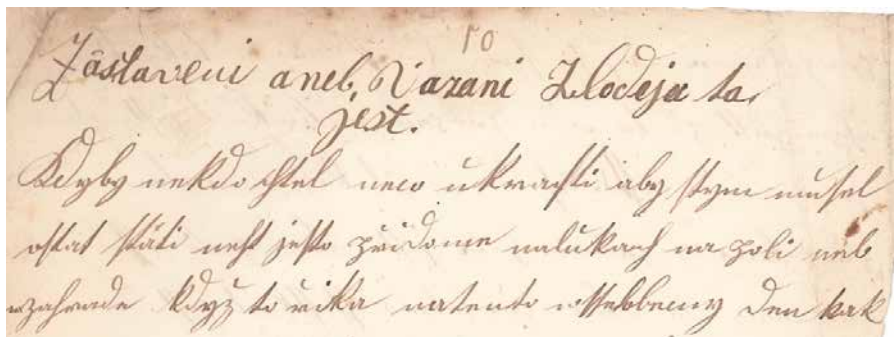 10
Zástaveni aneb Vazani Zlodeja ta
jest.
Kdyby nekdo chtel neco ukrasti aby stym musel
ostat státi nest jesto při dome nalukach na poli neb
zahrade když to rika natento den kak